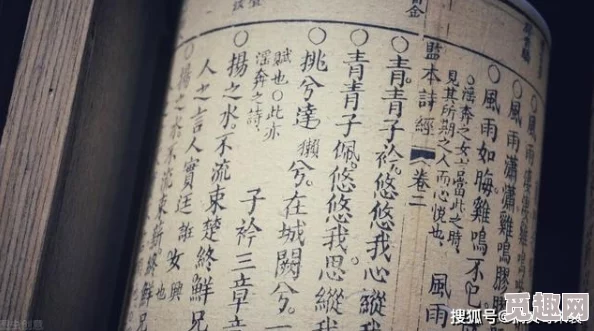 風雨瀟瀟雞鳴膠膠
○風雨如晦雞鳴不已
○淫奔之女言當此之時
見其所期之人而心悅也 風雨
監本詩經 卷二
○青青子衿悠悠我心縱我
○青青子佩悠悠我思縱我
○挑兮達獺兮。在城闕兮。一
賦也○此亦
淫奔之詩 子衿三章章
○揚之水。不流束楚。終鮮兄
人之言人實廷誑女 興也
○揚之水不流束薪終鮮
搜狐号@
觅趣网